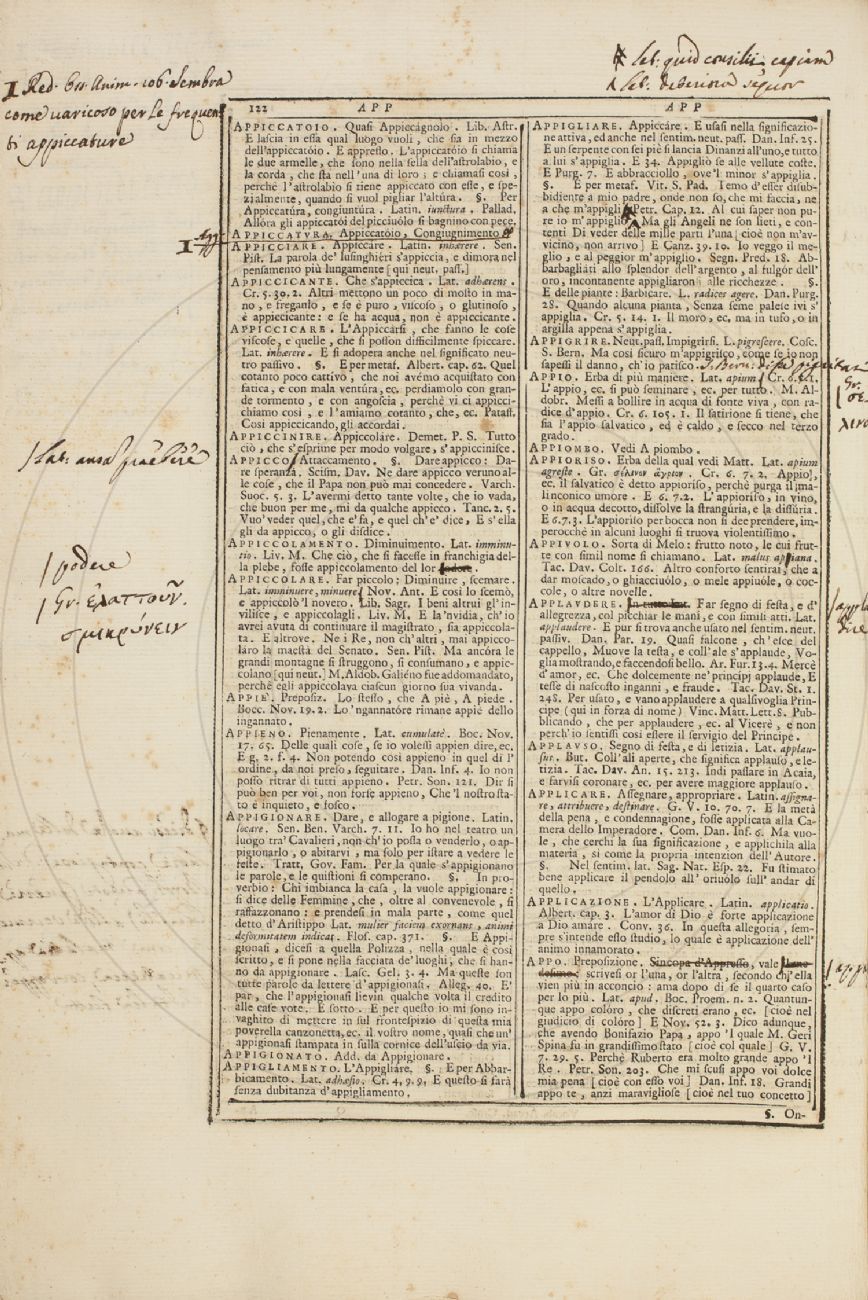 Red. Oss. Anim. 106. Sembra
come varicoso per le frequen
ti appiccature
Lat. quid consilii capiam
Lat.
122 APP APP
APPICCATOIO. Quasi Appiccágnolo. Lib. Astr.
E lascia in essa qual luogo vuoli, che sia in mezzo
dell'appiccatóio. E appresso. L'appiccatóio si chiama
le due armelle, che sono nella sella dell'astrolabio, e
la corda, che sta nell'una di loro; e chiamasi così,
perchè l'astrolabio si tiene appiccato con esse, e spe-
zialmente, quando si vuol pigliar l'altura. §. Per
Appiccatúra, congiuntúra. Latin. iunctura. Pallad.
Allóra gli appiccatói del picciuólo si bagnino con pece.
APPICCATURA. Appiccatóio, Congiugnimento
APPICCIARE. Appiccáre. Latin. inhærere. Sen.
Pist. La parola de' lusinghiéri s'appiccia, e dimora nel
pensamento più lungamente [qui neut. pass.]
APPICCICANTE. Che s'appiccica. Lat. adhærens.
Cr. 5. 30. 2. Altri mettono un poco di mosto in ma-
no, e freganlo, e se è puro, viscoso, o glutinoso,
è appiccicante: e se ha acqua, non è appiccicante.
APPICCICARE. L'Appiccársi, che fanno le cose
viscose, e quelle, che si posson difficilmente spiccare.
Lat. inhærere. E si adopera anche nel significato neu-
tro passivo. §. E per metaf. Albert. cap. 62. Quel
cotanto poco cattivo, che noi avémo acquistato con
fatica, e con mala ventúra, ec. perdiamolo con gran-
de tormento, e con angoscia, perchè vi ci appicci-
chiamo così, e l'amiamo cotanto, che, ec. Pataff.
Così appiccicando, gli accordai.
APPICCINIRE. Appiccoláre. Demet. P. S. Tutto
ciò, che s'esprime per modo volgare, s'appiccinisce.
APPICCO. Attaccamento. §. Dare appicco: Da-
re speranza. Scism. Dav. Ne dare appicco veruno al-
le cose, che il Papa non può mai concedere. Varch.
Suoc. 5. 3. L'avermi detto tante volte, che io vada,
che buon per me, mi da qualche appicco. Tanc. 2. 5.
Vuo' veder quel, che e' fa, e quel ch'e' dice, E s'ella
gli da appicco, o gli disdice.
APPICCOLAMENTO. Diminuimento. Lat. imminu-
tio. Liv. M. Che ciò, che si facesse in franchigia del-
la plebe, fosse appiccolamento del lor
APPICCOLARE. Far piccolo; Diminuire, scemare.
Lat. imminuere, minuere. Nov. Ant. E così lo scemò,
e appiccolò 'l novero. Lib. Sagr. I beni altrui gl'in-
villisce, e appiccolagli. Liv. M. E la 'nvidia, ch'io
avrei avuta di continuare il magistrato, sia appiccola-
ta. E altrove. Ne i Re, non ch'altri, mai appicco-
láro la maestà del Senato. Sen. Pist. Ma ancóra le
grandi montagne si struggono, si consumano, e appic-
colano [qui neut.] M. Aldob. Galiéno fue addomandato,
perchè egli appiccolava ciascun giorno sua vivanda.
APPIÈ. Preposiz. Lo stesso, che A piè, A piede.
Bocc. Nov. 19. 2. Lo 'ngannatóre rimane appiè dello
ingannato.
APPIENO. Pienamente. Lat. cumulatè. Boc. Nov.
17. 65. Delle quali cose, se io volessi appien dire, ec.
E g. 2. f. 4. Non potendo così appieno in quel dì l'
ordine, da noi preso, seguitare. Dan. Inf. 4. Io non
posso ritrar di tutti appieno. Petr. Son. 121. Dir si
può ben per voi, non forse appieno, Che 'l nostro sta-
to è inquieto, e fosco.
APPIGIONARE. Dare, e allogare a pigione. Latin.
locare. Sen. Ben. Varch. 7. 11. Io ho nel teatro un
luogo tra' Cavalieri, non ch'io possa o venderlo, o ap-
pigionarlo, o abitarvi, ma solo per istare a vedere le
feste. Tratt. Gov. Fam. Per la quale s'appigionano
le parole, e le quistioni si comperano. §. In pro-
verbio: Chi imbianca la casa, la vuole appigionare:
si dice delle Femmine, che, oltre al convenevole, si
raffazzonano: e prendesi in mala parte, come quel
detto d'Aristippo Lat. mulier faciem exornans, animi
deformitatem indicat. Flos. cap. 371. §. E Appi-
gionasi, dicesi a quella Polizza, nella quale è così
scritto, e si pone nella facciata de' luoghi, che si han-
no da appigionare. Lasc. Gel. 3. 4. Ma queste son
tutte parole da lettere d'appigionasi. Alleg. 40. E'
par, che l'appigionasi lievin qualche volta il credito
alle case vote. E sotto. E per questo io mi sono in-
vaghito di mettere in sul frontespizio di questa mia
poverella canzonetta, ec. il vostro nome, quasi che un'
appigionasi stampata in sulla cornice dell'uscio da via.
APPIGIONATO. Add. da Appigionare.
APPIGLIAMENTO. L'Appigliáre. §. E per Abbar-
bicamento. Lat. adhæsio. Cr. 4, 9, 9, E questo si farà
senza dubitanza d'appigliamento.
Lat. ansa
podere
Gr. ἐλαττοῦν.
σμικρύνειν
APPIGLIARE. Appiccáre. E usasi nella significazio-
ne attiva, ed anche nel sentim. neut. pass. Dan. Inf. 25.
E un serpente con sei piè si lancia Dinanzi all'uno, e tutto
a lui s'appiglia. E 34. Appigliò se alle vellute coste.
E Purg. 7. E abbracciollo, ove 'l minor s'appiglia.
§. E per metaf. Vit. S. Pad. Temo d'esser disub-
bidiente a mio padre, onde non so, che mi faccia, ne
a che m'appigli Petr. Cap. 12. Al cui saper non pu-
re io m'appiglio, Ma gli Angeli ne son lieti, e con-
tenti Di veder delle mille parti l'una [cioè non m'av-
vicino, non arrivo] E Canz. 39. 10. Io veggo il me-
glio, e al peggior m'appiglio. Segn. Pred. 18. Ab-
barbagliati allo splendor dell'argento, al fulgór dell'
oro, incontanente appigliaron alle ricchezze. §.
E delle piante: Barbicare. L. radices agere. Dan. Purg.
28. Quando alcuna pianta, Senza seme palese ivi s'
appiglia. Cr. 5. 14. 1. Il moro, ec. ma in tufo, o in
argilla appena s'appiglia.
APPIGRIRE. Neut. pass. Impigrírsi. L. pigrescere. Cosc.
S. Bern. Ma così sicuro m'appigrisco, come se io non
sapessi il danno, ch'io patisco.
APPIO. Erba di più maniere. Lat. apium. Cr. 6. 2. 1.
L'appio, ec. si può seminare, ec. per tutto. M. Al-
dobr. Messi a bollire in acqua di fonte viva, con ra-
dice d'appio. Cr. 6. 105. 1. Il satirione si tiene, che
sia l'appio salvatico, ed è caldo, e secco nel terzo
grado.
APPIOMBO. Vedi A piombo.
APPIORISO. Erba della qual vedi Matt. Lat. apium
agreste. Gr. σέλινον ἄγριον. Cr. 6. 7. 2. Appio,
ec. il salvatico è detto appioriso, perchè purga il ma-
linconico umore. E 6. 7. 2. L'appioriso, in vino,
o in acqua decotto, dissolve la strangúria, e la dissúria.
E 6. 7. 3. L'appioriso per bocca non si dee prendere, im-
perocchè in alcuni luoghi si truova violentissimo.
APPIUOLO. Sorta di Melo: frutto noto, le cui frut-
te con simil nome si chiamano. Lat. malus appiana.
Tac. Dav. Colt. 166. Altro conforto sentirai, che a
dar moscado, o ghiacciuólo, o mele appiuóle, o coc-
cole, o altre novelle.
APPLAUDERE. Far segno di festa, e d'
allegrezza, col picchiar le mani, e con simili atti. Lat.
applaudere. E pur si trova anche usato nel sentim. neut.
passiv. Dan. Par. 19. Quasi falcone, ch'esce del
cappello, Muove la testa, e coll'ale s'applaude, Vo-
glia mostrando, e faccendosi bello. Ar. Fur. 13. 4. Mercè
d'amor, ec. Che dolcemente ne' principj applaude, E
tesse di nascosto inganni, e fraude. Tac. Dav. St. 1.
248. Per usato, e vano applaudere a qualsivoglia Prin-
cipe (qui in forza di nome) Vinc. Matt. Lett. §. Pub-
blicando, che per applaudere, ec. al Viceré, e non
perch'io sentissi così essere il servigio del Principe.
APPLAUSO. Segno di festa, e di letizia. Lat. applau-
sus. But. Coll'ali aperte, che significa applauso, e le-
tizia. Tac. Dav. An. 15. 213. Indi passare in Acaia,
e farvisi coronare, ec. per avere maggiore applauso.
APPLICARE. Assegnare, appropriare. Latin. assigna-
re, attribuere, destinare. G. V. 10. 70. 7. E la metà
della pena, e condennagione, fosse applicata alla Ca-
mera dello Imperadore. Com. Dan. Inf. 6. Ma vuo-
le, che cerchi la sua significazione, e applichila alla
materia, sì come la propria intenzion dell'Autore.
§. Nel sentim. lat. Sag. Nat. Esp. 22. Fu stimato
bene applicare il pendolo all'oriuólo sull'andar di
quello.
APPLICAZIONE. L'Applicare. Latin. applicatio.
Albert. cap. 3. L'amor di Dio è forte applicazione
a Dio amáre. Conv. 36. In questa allegoria, sem-
pre s'intende esso studio, lo quale è applicazione dell'
animo innamorato.
APPO. Preposizione. Sincopa d'Appresso, vale
scrivesi or l'una, or l'altra, secondo ch'ella
vien più in acconcio: ama dopo di se il quarto caso
per lo più. Lat. apud. Boc. Proem. n. 2. Quantun-
que appo colóro, che discreti erano, ec. [cioè nel
giudicio di colóro] E Nov. 52. 3. Dico adunque,
che avendo Bonifazio Papa, appo 'l quale M. Geri
Spina fu in grandissimo stato [cioè col quale] G. V.
7. 29. 5. Perchè Ruberto era molto grande appo 'l
Re. Petr. Son. 203. Che mi scusi appo voi dolce
mia pena [cioè con esso voi] Dan. Inf. 18. Grandi
appo te, anzi maravigliose [cioè nel tuo concetto]
§. On-